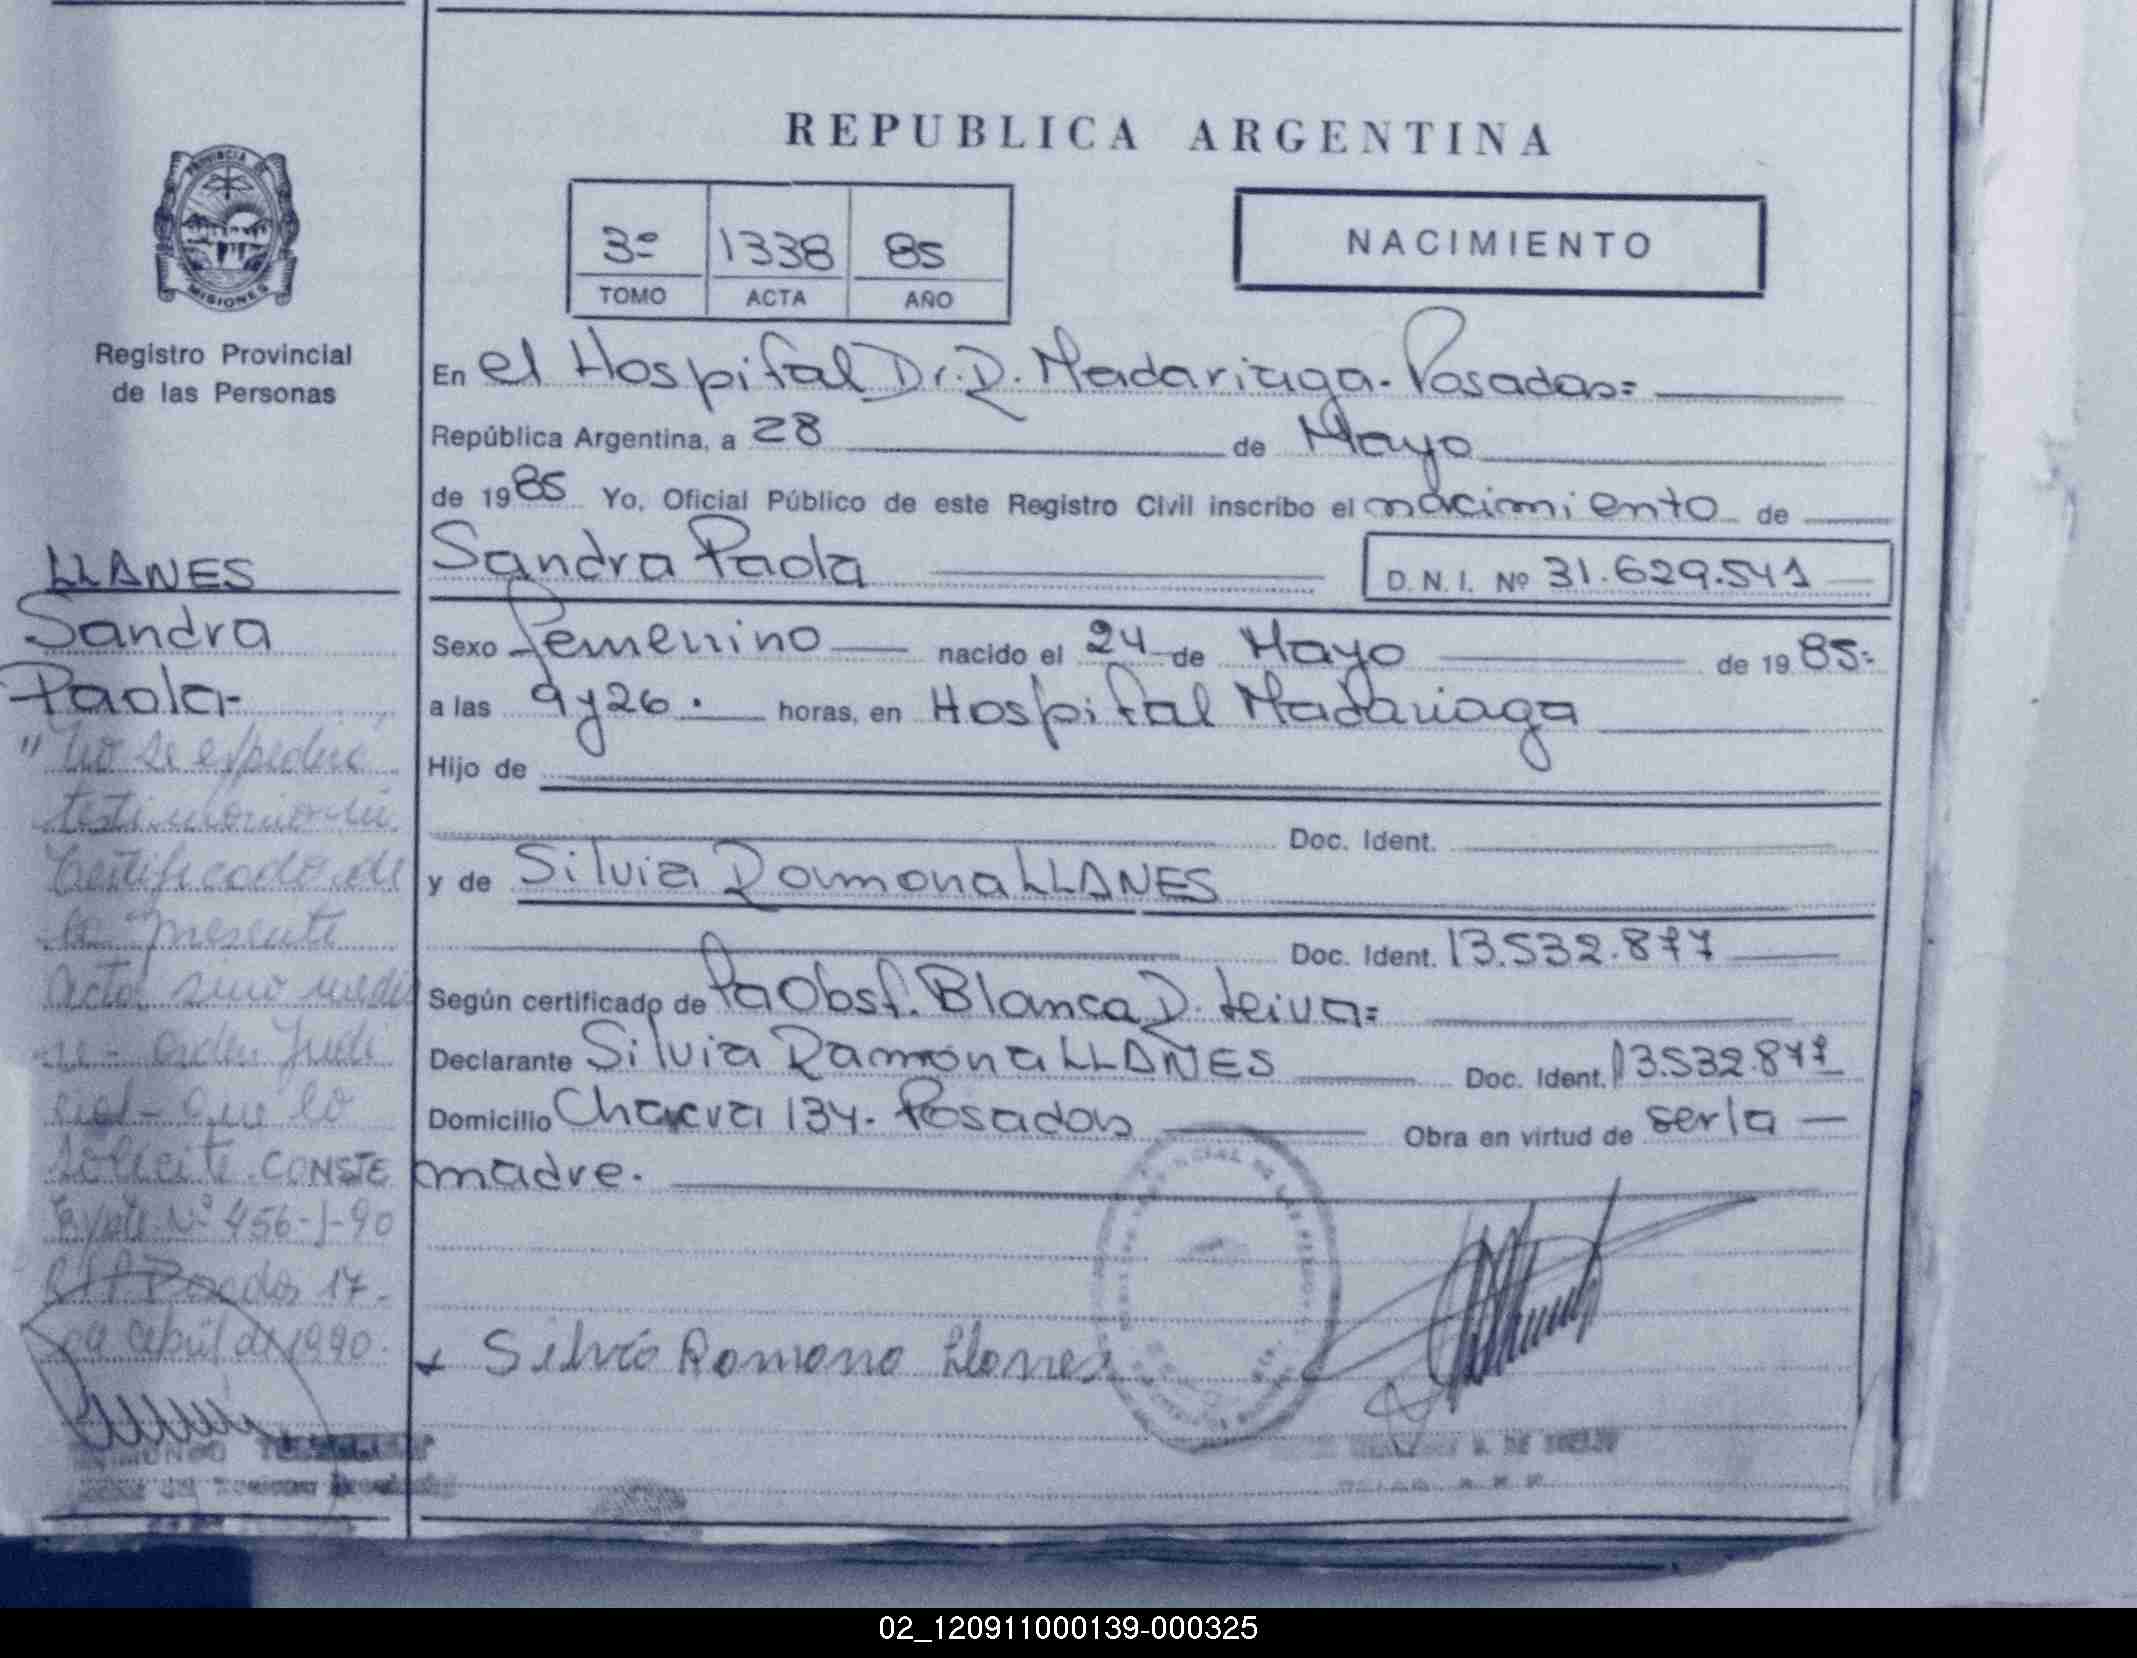 REPUBLICA ARGENTINA
PROVINCIA DE MISIONES
Registro Provincial
de las Personas
3º 1338 85
TOMO ACTA AÑO
NACIMIENTO
En el Hospital Dr. R. Madariaga. Posadas=
República Argentina, a 28 de Mayo
de 1985 Yo, Oficial Público de este Registro Civil inscribo el nacimiento de
Sandra Paola D. N. I. Nº 31.629.541
Sexo Femenino nacido el 24 de Mayo de 1985=
a las 9 y 26. horas, en Hospital Madariaga
Hijo de
Doc. Ident.
y de Silvia Ramona LLANES
Doc. Ident. 13.532.877
Según certificado de Pa Obst. Blanca D. Leiva=
Declarante Silvia Ramona LLANES Doc. Ident. 13.532.877
Domicilio 134. Posadas Obra en virtud de ser la
madre.
Silvia Ramona Llanes
LLANES
Sandra
Paola-
"No se expedirá
testimonio ni
Certificado de
la presente
acta sino medi
orden Judi
cial- que lo
solicite. CONSTE
Expte. Nº 456-J-90
Posadas 17-
de abril de 1990.
02_120911000139-000325